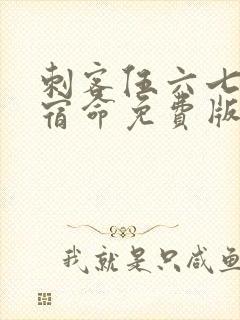 刺客伍六七
宿命免费版
我就是只咸鱼